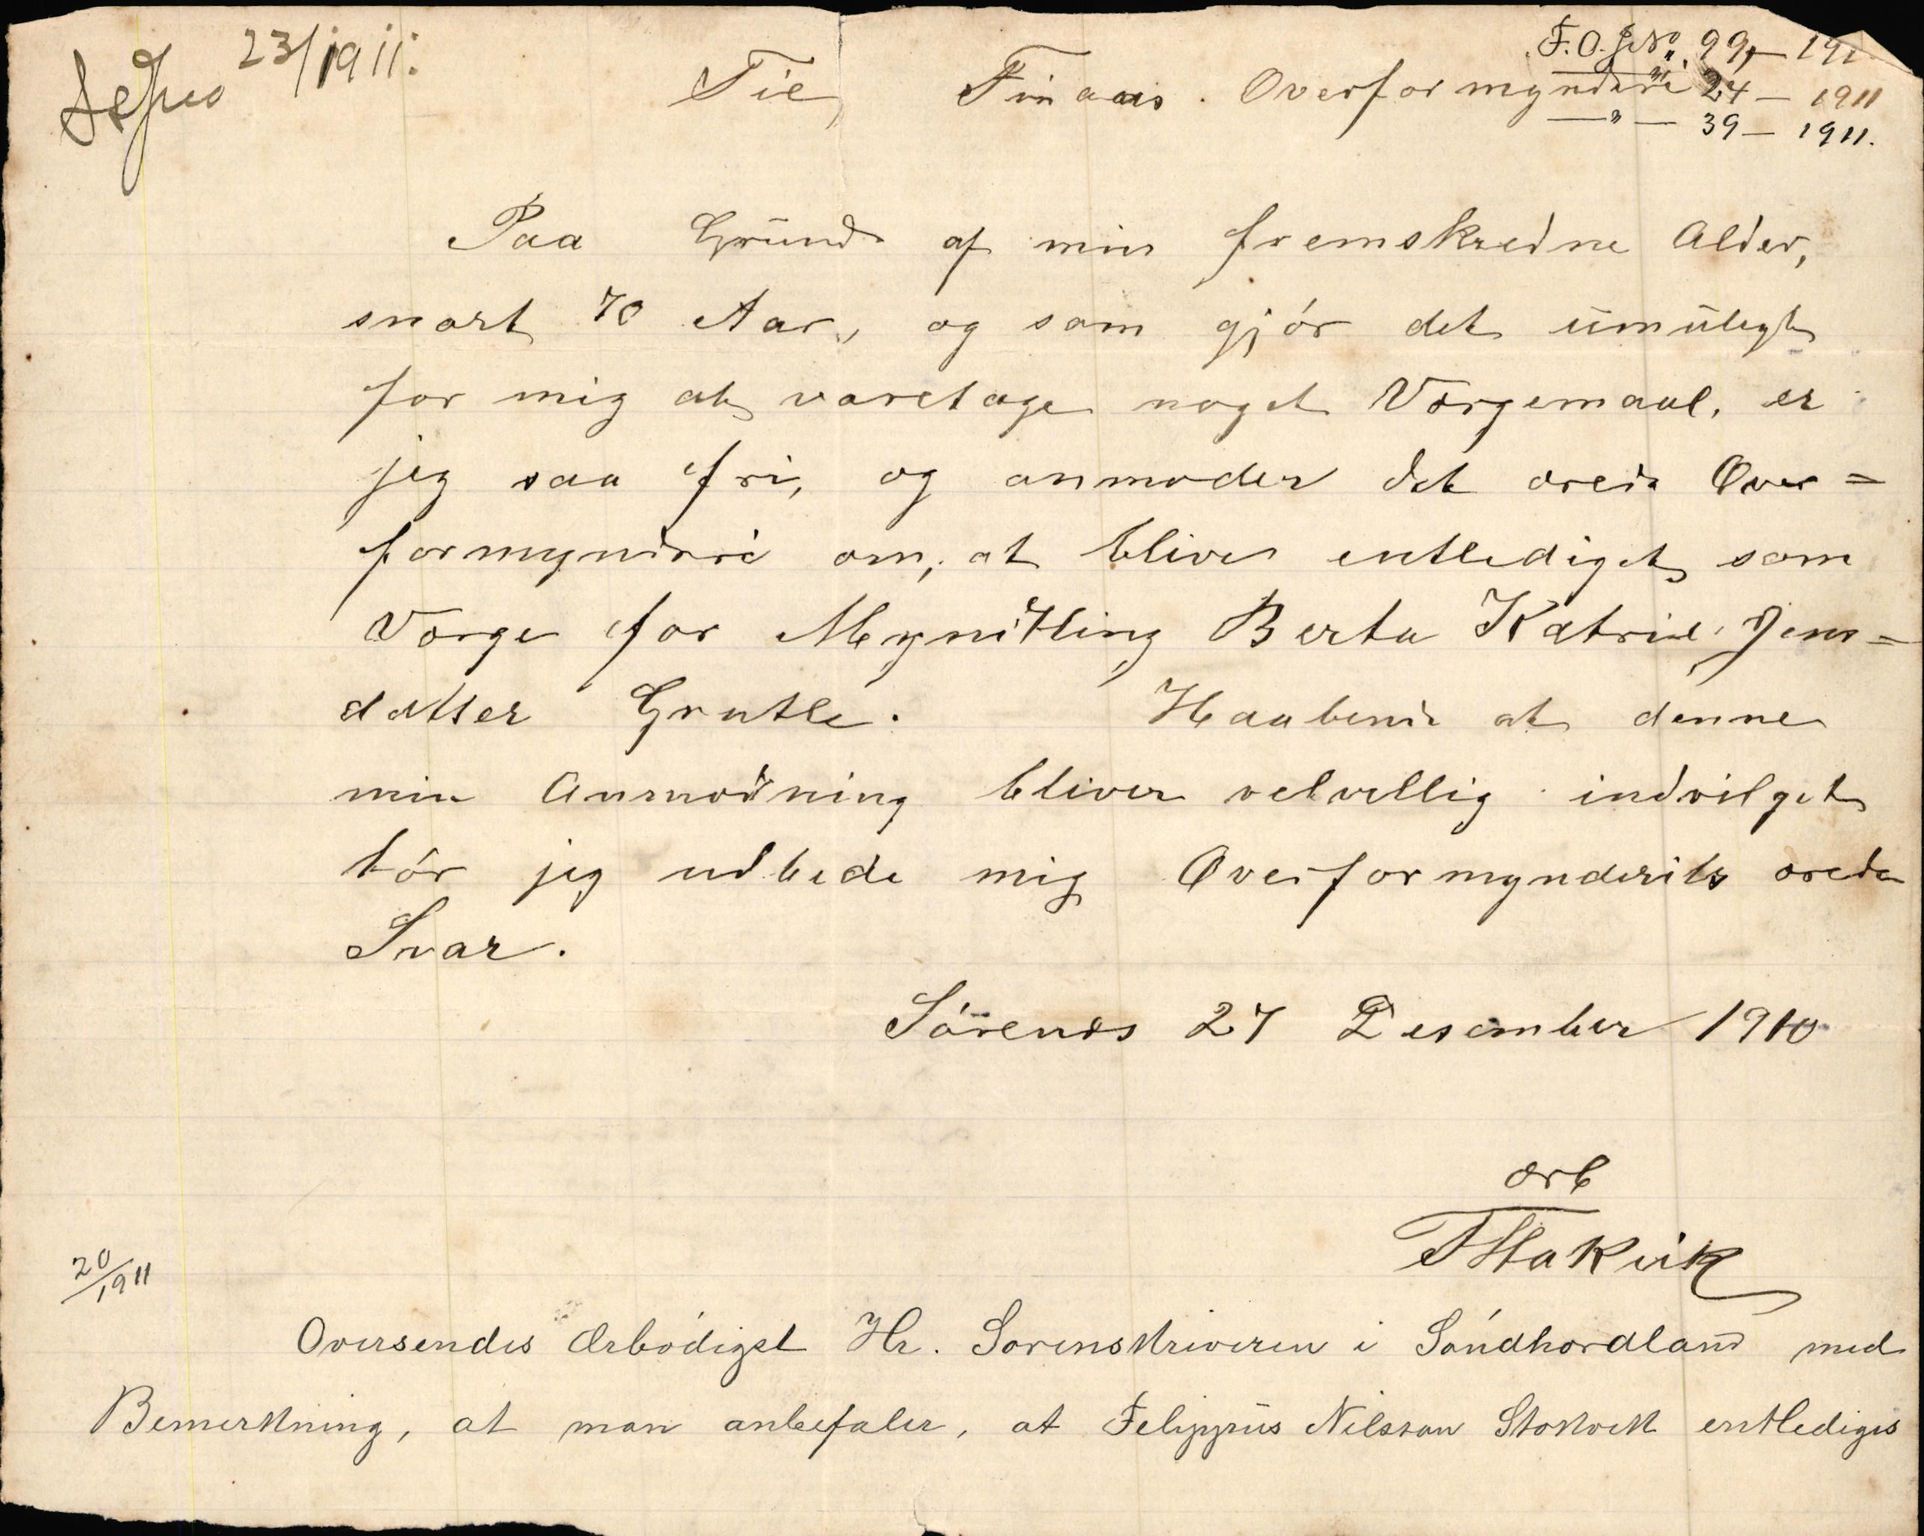 23/1911.
F.O. J.No. 99 — 191
Til Finaas Overformynderi 24 — 1911
— " — 39 — 1911.
Paa Grund af min fremskredne Alder,
snart 70 Aar, og som gjór det umuligt
for mig at varetage noget Værgemaal, er
jeg saa fri, og anmoder det ærede Over=
formynderi om, at blive entlediget som
Værge for Myndtling Berta Katrine Jens=
datter Grutle. Haabende at denne
min Anmodning bliver velvillig indvilget
tór jeg udbede mig Overformynderits ærede
Svar.
Sórenæs 27 Desember 1910
ærb
F Stakvik
20/1911
Oversendes Ærbódigst Hr. Sorenskriveren i Sóndhordland med
Bemerkning, at man anbefaler, at Felippus Nilssøn Stokvik entlediges